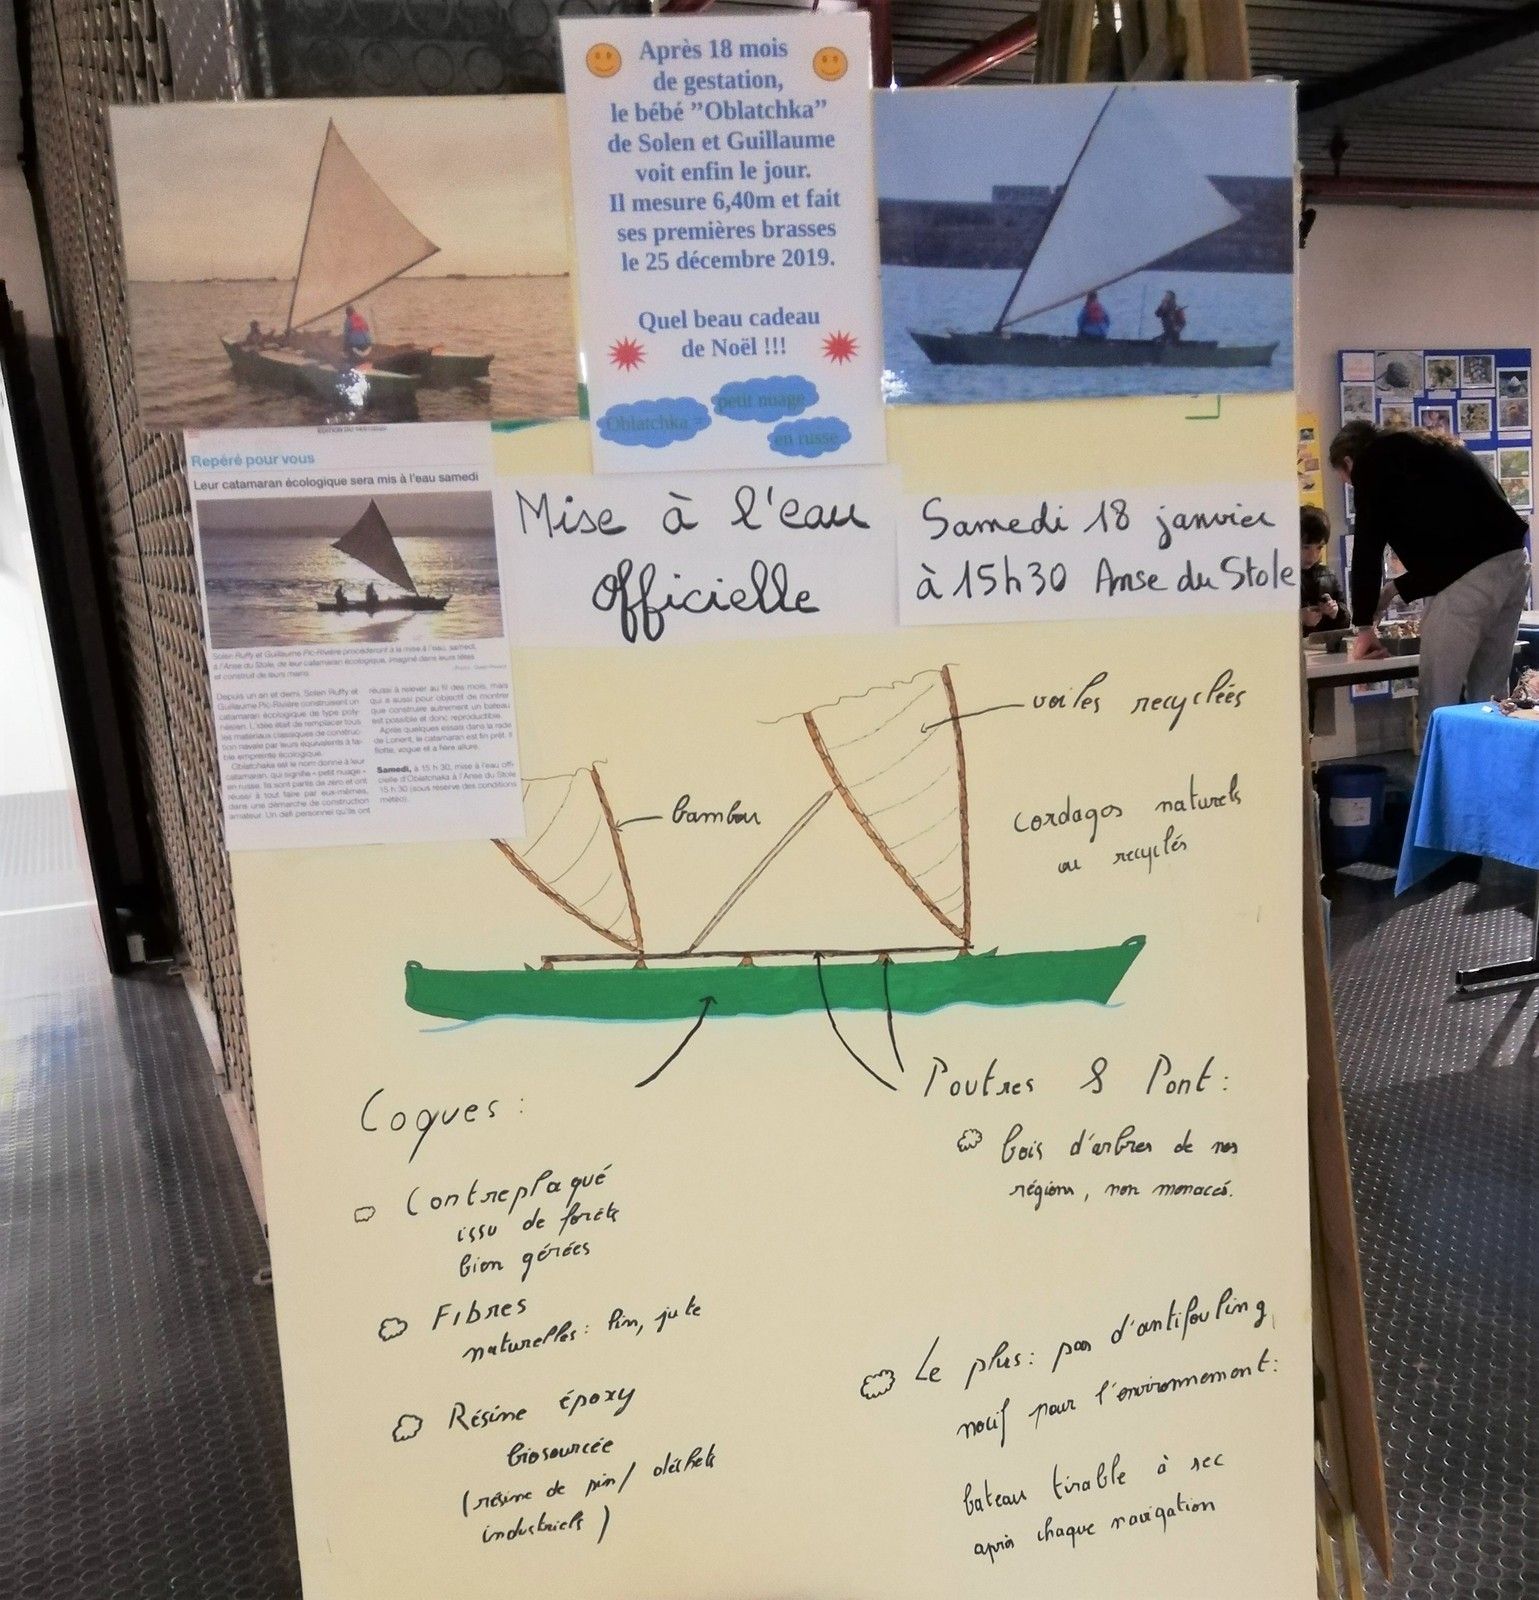 Après 18 mois
de gestation,
le bébé ”Oblatchka”
de Solen et Guillaume
voit enfin le jour.
Il mesure 6,40m et fait
ses premières brasses
le 25 décembre 2019.
Quel beau cadeau
de Noël !!!
Oblatchka =
petit nuage
en russe
Repéré pour vous
Leur catamaran écologique sera mis à l'eau samedi
Solen Ruffy et Guillaume Pic-Rivière procéderont à la mise à l'eau, samedi,
à l'Anse du Stole, de leur catamaran écologique, imaginé dans leurs têtes
et construit de leurs mains.
Depuis un an et demi, Solen Ruffy et
Guillaume Pic-Rivière construisent un
catamaran écologique de type poly-
nésien. L'idée était de remplacer tous
les matériaux classiques de construc-
tion navale par leurs équivalents à fai-
ble empreinte écologique.
Oblatchka est le nom donné à leur
catamaran, qui signifie « petit nuage »
en russe. Ils sont partis de zéro et ont
réussi à tout faire par eux-mêmes,
dans une démarche de construction
amateur. Un défi personnel qu'ils ont
réussi à relever au fil des mois, mais
qui a aussi pour objectif de montrer
que construire autrement un bateau
est possible et donc reproductible.
Après quelques essais dans la rade
de Lorient, le catamaran est fin prêt. Il
flotte, vogue et a fière allure.
Samedi, à 15 h 30, mise à l'eau offi-
cielle d'Oblatchaka à l'Anse du Stole
15 h 30 (sous réserve des conditions
météo).
Mise à l'eau
officielle
Samedi 18 janvier
à 15h30 Anse du Stole
voiles recyclées
bambou
cordages naturels
ou recyclés
Coques :
Contreplaqué
issu de forêts
bien gérées
Fibres
naturelles : lin, jute
Résine époxy
biosourcée
(résine de pin / déchets
industriels)
Poutres & Pont :
bois d'arbres de nos
régions, non menacés.
Le plus : pas d'antifouling
nocif pour l'environnement :
bateau tirable à sec
après chaque navigation